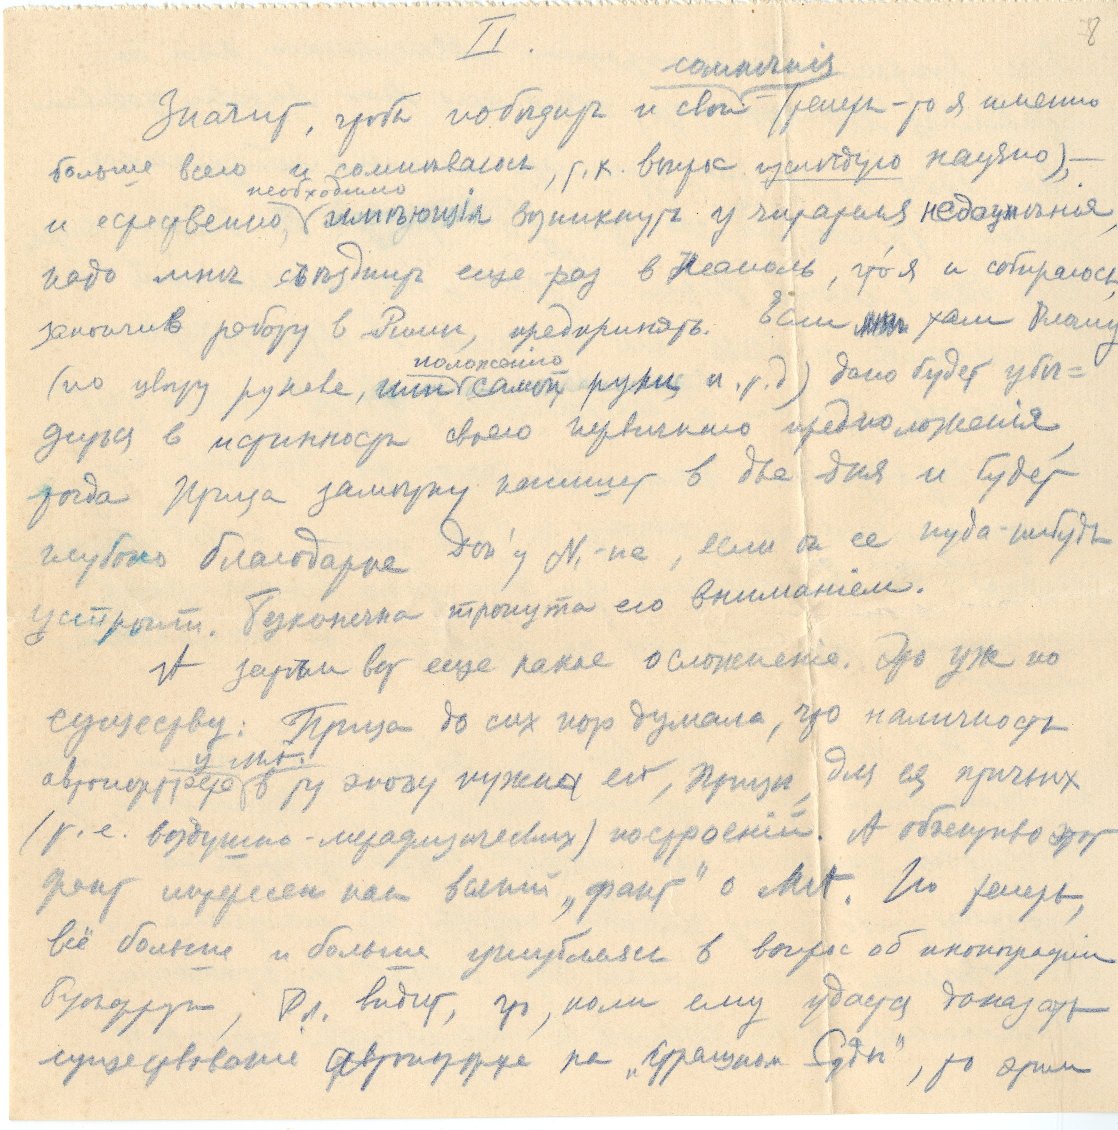 II.
8
сомнѣнія
Значит, чтобы победить и свои – (теперь-то я именно
больше всего и сомнѣваюсь, т.к. вопрос изслѣдую научно),–
необходимо
и естественно, имѣющія возникнуть у читателя недоумѣнія,
надо мнѣ съѣздить еще раз в Неаполь, что я и собираюсь,
закончив работу в Римѣ, предпринять. Если там Фламу
положенію
(по цвѣту рукава, или самой руки и.т.д) дано будет убѣ=
диться в истинности своего первичнаго предположенія,
тогда Птица замѣтку напишет в два дня и будет
глубоко благодарна Дон'у N.-не, если он ее куда-нибудь
устроит. Безконечно тронута его вниманіем.
А затѣм вот еще какое осложненіе. Это уж по
существу: Птица до сих пор думала, что наличность
у М.А.
автопортрета в ту эпоху нужна ей, Птицѣ, для ея личных
(т.е. воздушно-метафизических) построеній. А объективно этот
факт интересен как всякій „факт" о МА. Но теперь,
всё больше и больше углубляясь в вопрос об иконографіи
Буонарроти, Фл. видит, что, коли ему удастся доказать
существованіе автопортрета на „Страшном Судѣ", то этим